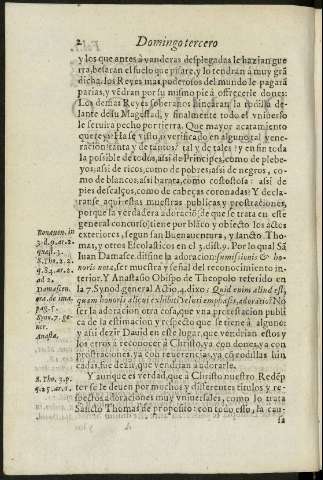 2 Domingo tercero
y los que antes à vanderas desplegadas le hazian guerra,
besaran el suelo que pisare, y lo tendràn à muy grã
dicha. los Reyes mas poderosos del mundo le pagarà
parias, y vẽdran por su mismo pie à ofrecerle dones:
Los demas Reyes soberanos hincaran la rodilla delante
de su Magestad, y finalmente todo el vniuerso
le seruira pecho por tierra. Que mayor acatamiento
quereys? Ha se visto, o verificado en alguno tal veneracion:
tanta y de tantos? tal y de tales? y en fin toda
la posible de todos, assi de Principes, como de plebeyos;
assi de ricos, como de pobres; assi de negros, como
de blancos, assi barata, como costosa: assi de
pies descalços, como de cabeças coronadas? Y declaranse
aqui estas muestras publicas y prostraciones,
porque la verdadera adoració, de que se trata en este
general concurso, tiene por blãco y obiecto los actos
exteriores, segun san Buenauentura, y sancto Thomas,
y otros Escolasticos en el 3. dist. 9. Por lo qual Sã
Iuan Damasc. difine la adoracion: sumissionis & honoris
nota, ser muestra y señal del reconocimiento interior.
Y Anastasio Obispo de Theopolo referido en
la 7. Synod. general Actio. 4. dixo: Quid enim aliud est,
quam honoris alicui exhibiti veluti emphasis, adoratio? No
ser la adoracion otra cosa, que vna protestacion publica
de la estimacion y respecto que se tiene à alguno:
y assi dezir Dauid en este lugar, que vendrian estos y
los otros à reconocer à Christo, ya con dones, ya con
prostraciones, ya con reuerencias, ya cõ rodillas hincadas,
fue dezir, que vendrian à adorarle.
Y aunque es verdad, que à Christo nuestro Redẽpter
se le deuen por muchos y differentes titulos y respectos
adoraciones muy vniuersales, como lo trata
Sancto Thomas de proposito: con todo esso, la causa
Bonauen. in
3. d. 9. ar. 2.
quæst. 3.
S. Tho. 2. 2.
q. 84. ar. 2.
ad 2.
Damascen.
ora. de ima.
pag. 5.
Syno. 7. gener.
Anasta.
S. Tho. 3. p.
q. 25. ar. 1.